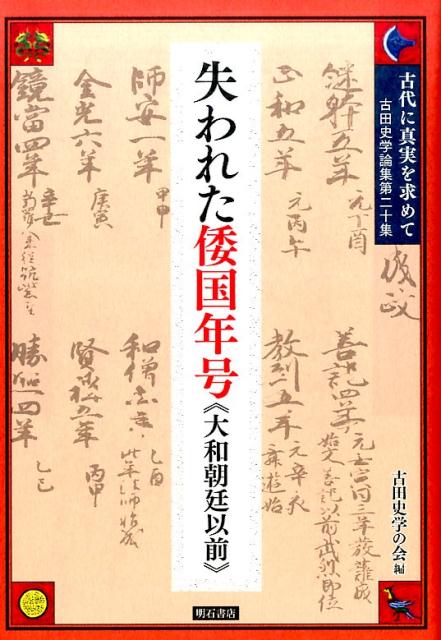 古代に真実を求めて
古田史学論集第二十集
失われた倭国年号《大和朝廷以前》
古田史学の会 編
明石書店
五年
元丁酉
善記四年
正和五年
元丙午
教到五年
元辛亥
舞遊始
師安一年
和僧
此年法師始成
金光六年
庚寅
五年
丙申
鏡當四年
勝照四年
乙巳